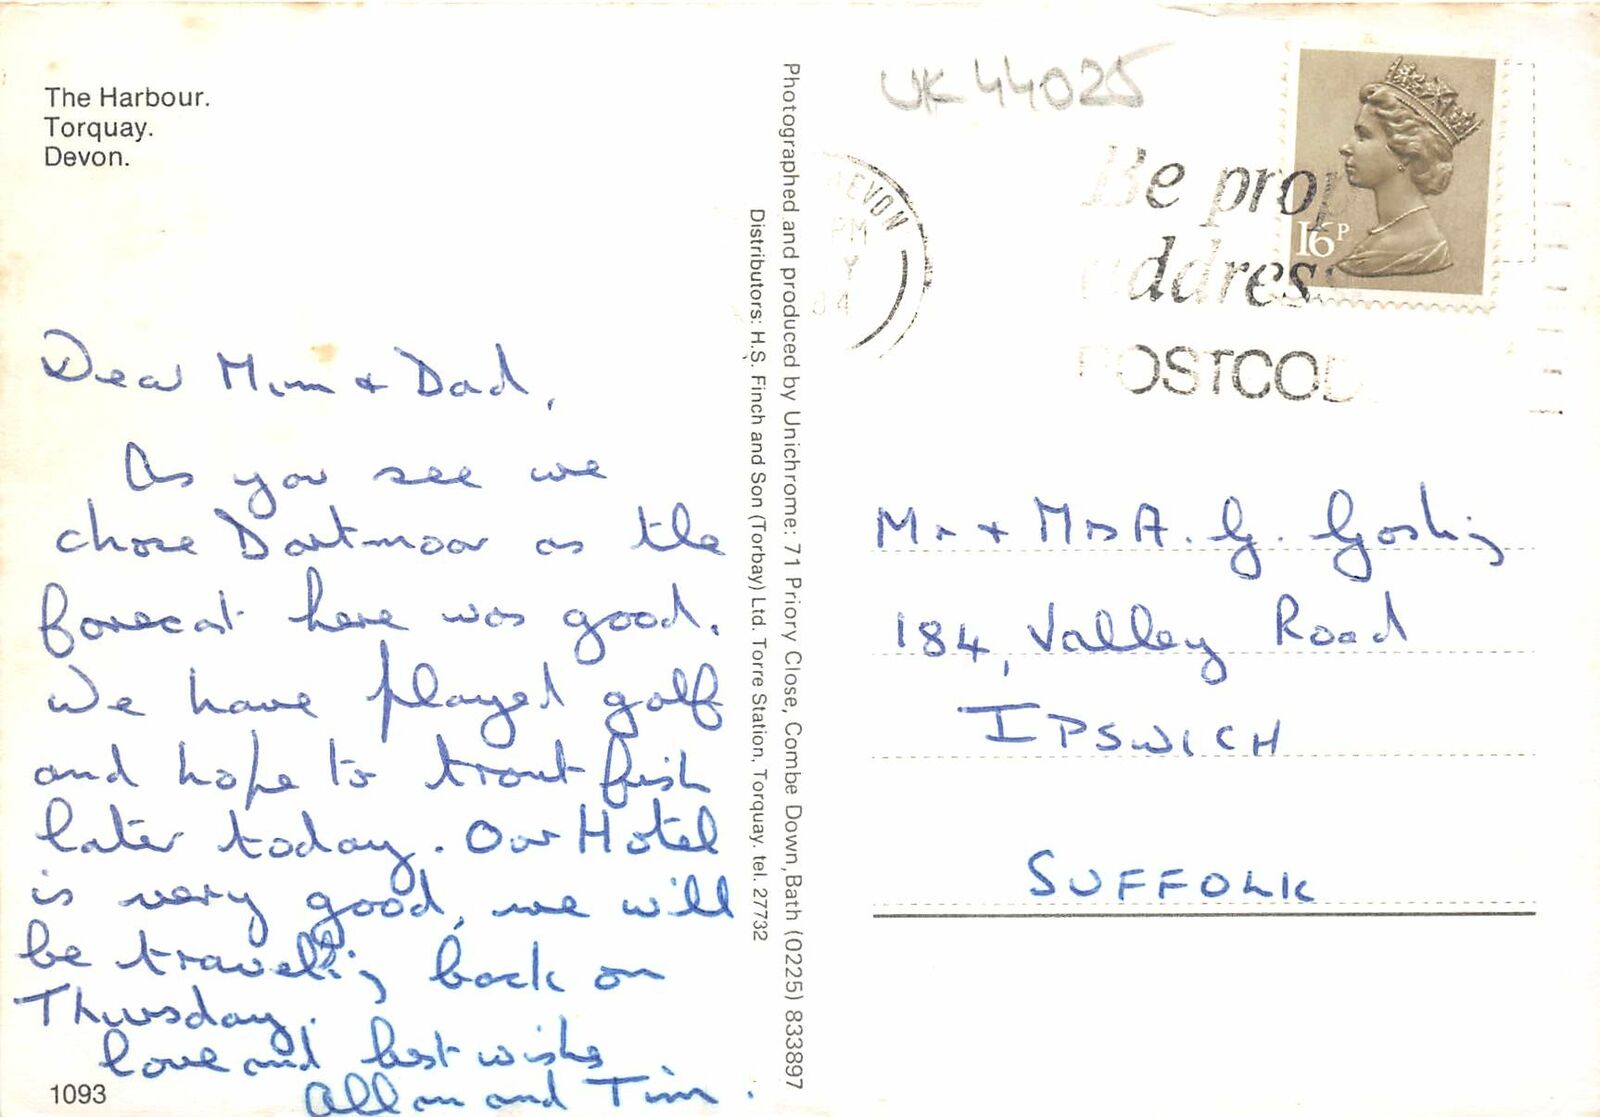 The Harbour.
Torquay.
Devon.
Dear Mum & Dad,
As you see we
chose Dartmoor as the
forecast here was good.
We have played golf
and hope to trout fish
later today. Our Hotel
is very good, we will
be travelling back on
Thursday.
love and best wishes
Allan and Tim.
1093
Photographed and produced by Unichrome: 71 Priory Close, Combe Down, Bath (0225) 833897
Distributors: H.S. Finch and Son (Torbay) Ltd. Torre Station, Torquay. tel. 27732
UK 44025
DEVON
PM
84
Be prop
address
POSTCOD
16P
Mr & Mrs A. G. Gosling
184, Valley Road
IPSWICH
SUFFOLK